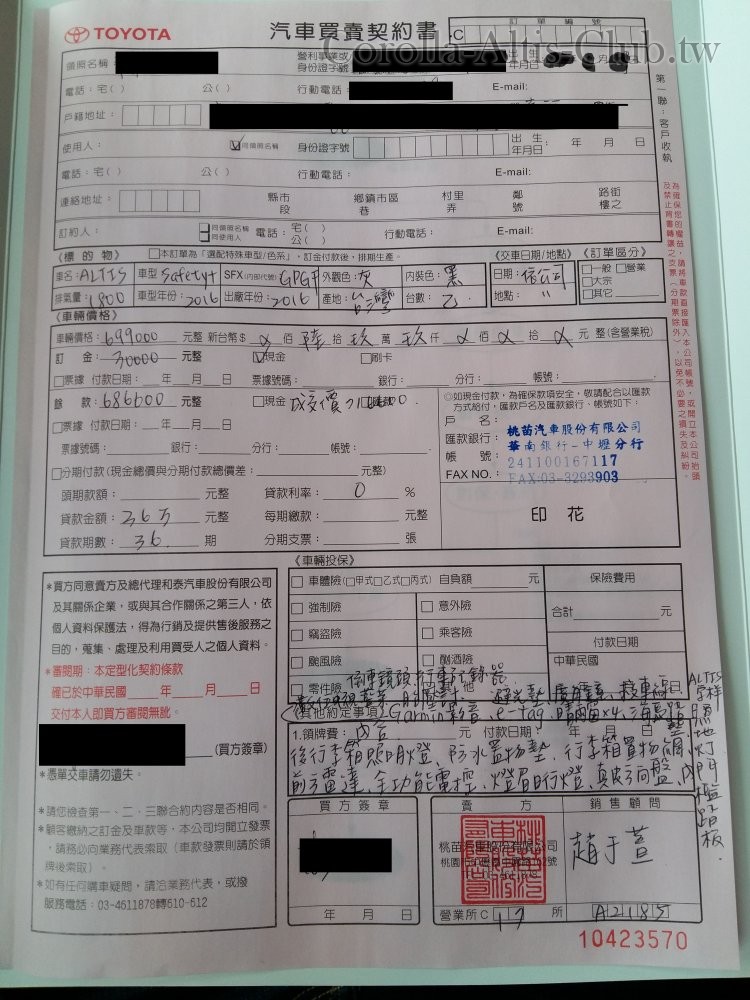 Corolla-Altis-Club.tw
TOYOTA
汽車買賣契約書
訂單編號
C
領照名稱
營利事業或
身份證字號
出生
年月日
電話：宅( ) 公( ) 行動電話： E-mail:
戶籍地址：
使用人： 同領照名稱 身份證字號 出生年月日 年 月 日
電話：宅( ) 公( ) 行動電話： E-mail:
連絡地址： 縣市 鄉鎮市區 村里 鄰 路街
段 巷 弄 號 樓之
訂約人： 同領照名稱 同使用人 電話：宅( ) 公( ) 行動電話： E-mail:
第一聯：客戶收執
《標的物》 本訂單為「選配特殊車型/色系」，訂金付款後，排期生產。 《交車日期/地點》 《訂單區分》
車名：ALTIS 車型 Safety+ SFX(內部代號) GPGF 外觀色：灰 內裝色：黑 日期：依公司 一般 營業
大宗
排氣量：1800 車型年份：2016 出廠年份：2016 產地：台灣 台數：乙 地點： 〃 其它
《車輛價格》
車輛價格：699000 元整 新台幣$ 佰 陸 拾 玖 萬 玖 仟 佰 拾 元 整(含營業稅)
訂 金：30000 元整 現金 刷卡
票據 付款日期： 年 月 日 票據號碼： 銀行： 分行： 帳號：
餘 款：686600 元整 現金 成交價
票據 付款日期： 年 月 日
票據號碼： 銀行： 分行： 帳號：
◎如現金付款，為確保款項安全，敬請配合以匯款
方式給付，匯款戶名及匯款銀行、帳號如下：
戶 名： 桃苗汽車股份有限公司
匯款銀行： 華南銀行－中壢分行
帳 號： 241100167117
FAX NO.： FAX:03-3293903
分期付款(現金總價與分期付款總價差： 元整)
頭期款額： 元整 貸款利率： 0 %
貸款金額：36万 元整 每期繳款： 元整
貸款期數：36. 期 分期支票： 張
印 花
《車輛投保》
車體險(甲式 乙式 丙式) 自負額 元 保險費用
強制險 意外險 合計 元
竊盜險 乘客險 付款日期
颱風險 酗酒險 中華民國
零件險 其他 年 月 日
＊買方同意賣方及總代理和泰汽車股份有限公司
及其關係企業，或與其合作關係之第三人，依
個人資料保護法，得為行銷及提供售後服務之
目的，蒐集、處理及利用買受人之個人資料。
＊審閱期：本定型化契約條款
確已於中華民國 年 月 日
交付本人即買方審閱無訛。
(買方簽章)
＊憑單交車請勿遺失。
倒車鏡頭.行車記錄器.
(其他約定事項) Garmin影音、e-tag、晴雨窗x4、
1.領牌費：內含 付款方式： 付款日期： 年 月 日
後行李箱照明燈、防水置物墊、行李箱置物網
前方雷達、全功能電控、燈眉日行燈、真皮方向盤、
ALTIS字樣照地灯門檻踏板.
＊請您檢查第一、二、三聯合約內容是否相同。
＊顧客繳納之訂金及車款等，本公司均開立發票
，請務必向業務代表索取（車款發票則請於領
牌後索取）。
＊如有任何購車疑問，請洽業務代表，或撥
服務電話：03-4611878轉510-512
買方簽章 賣方 銷售顧問
桃苗汽車股份有限公司
趙于萱
年 月 日 營業所C 17 所 A2185
10423570